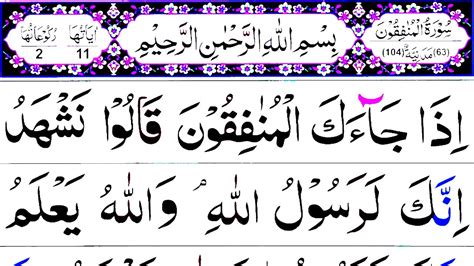 سُوْرَةُ الْمُنٰفِقُوْنَ
(63) مَدَنِيَّةٌ (104)
بِسْمِ اللّٰهِ الرَّحْمٰنِ الرَّحِيْمِ
اٰيَاتُهَا 11
رُكُوْعَاتُهَا 2
اِذَا جَآءَكَ الْمُنٰفِقُوْنَ قَالُوْا نَشْهَدُ
اِنَّكَ لَرَسُوْلُ اللّٰهِ ۘ وَاللّٰهُ يَعْلَمُ